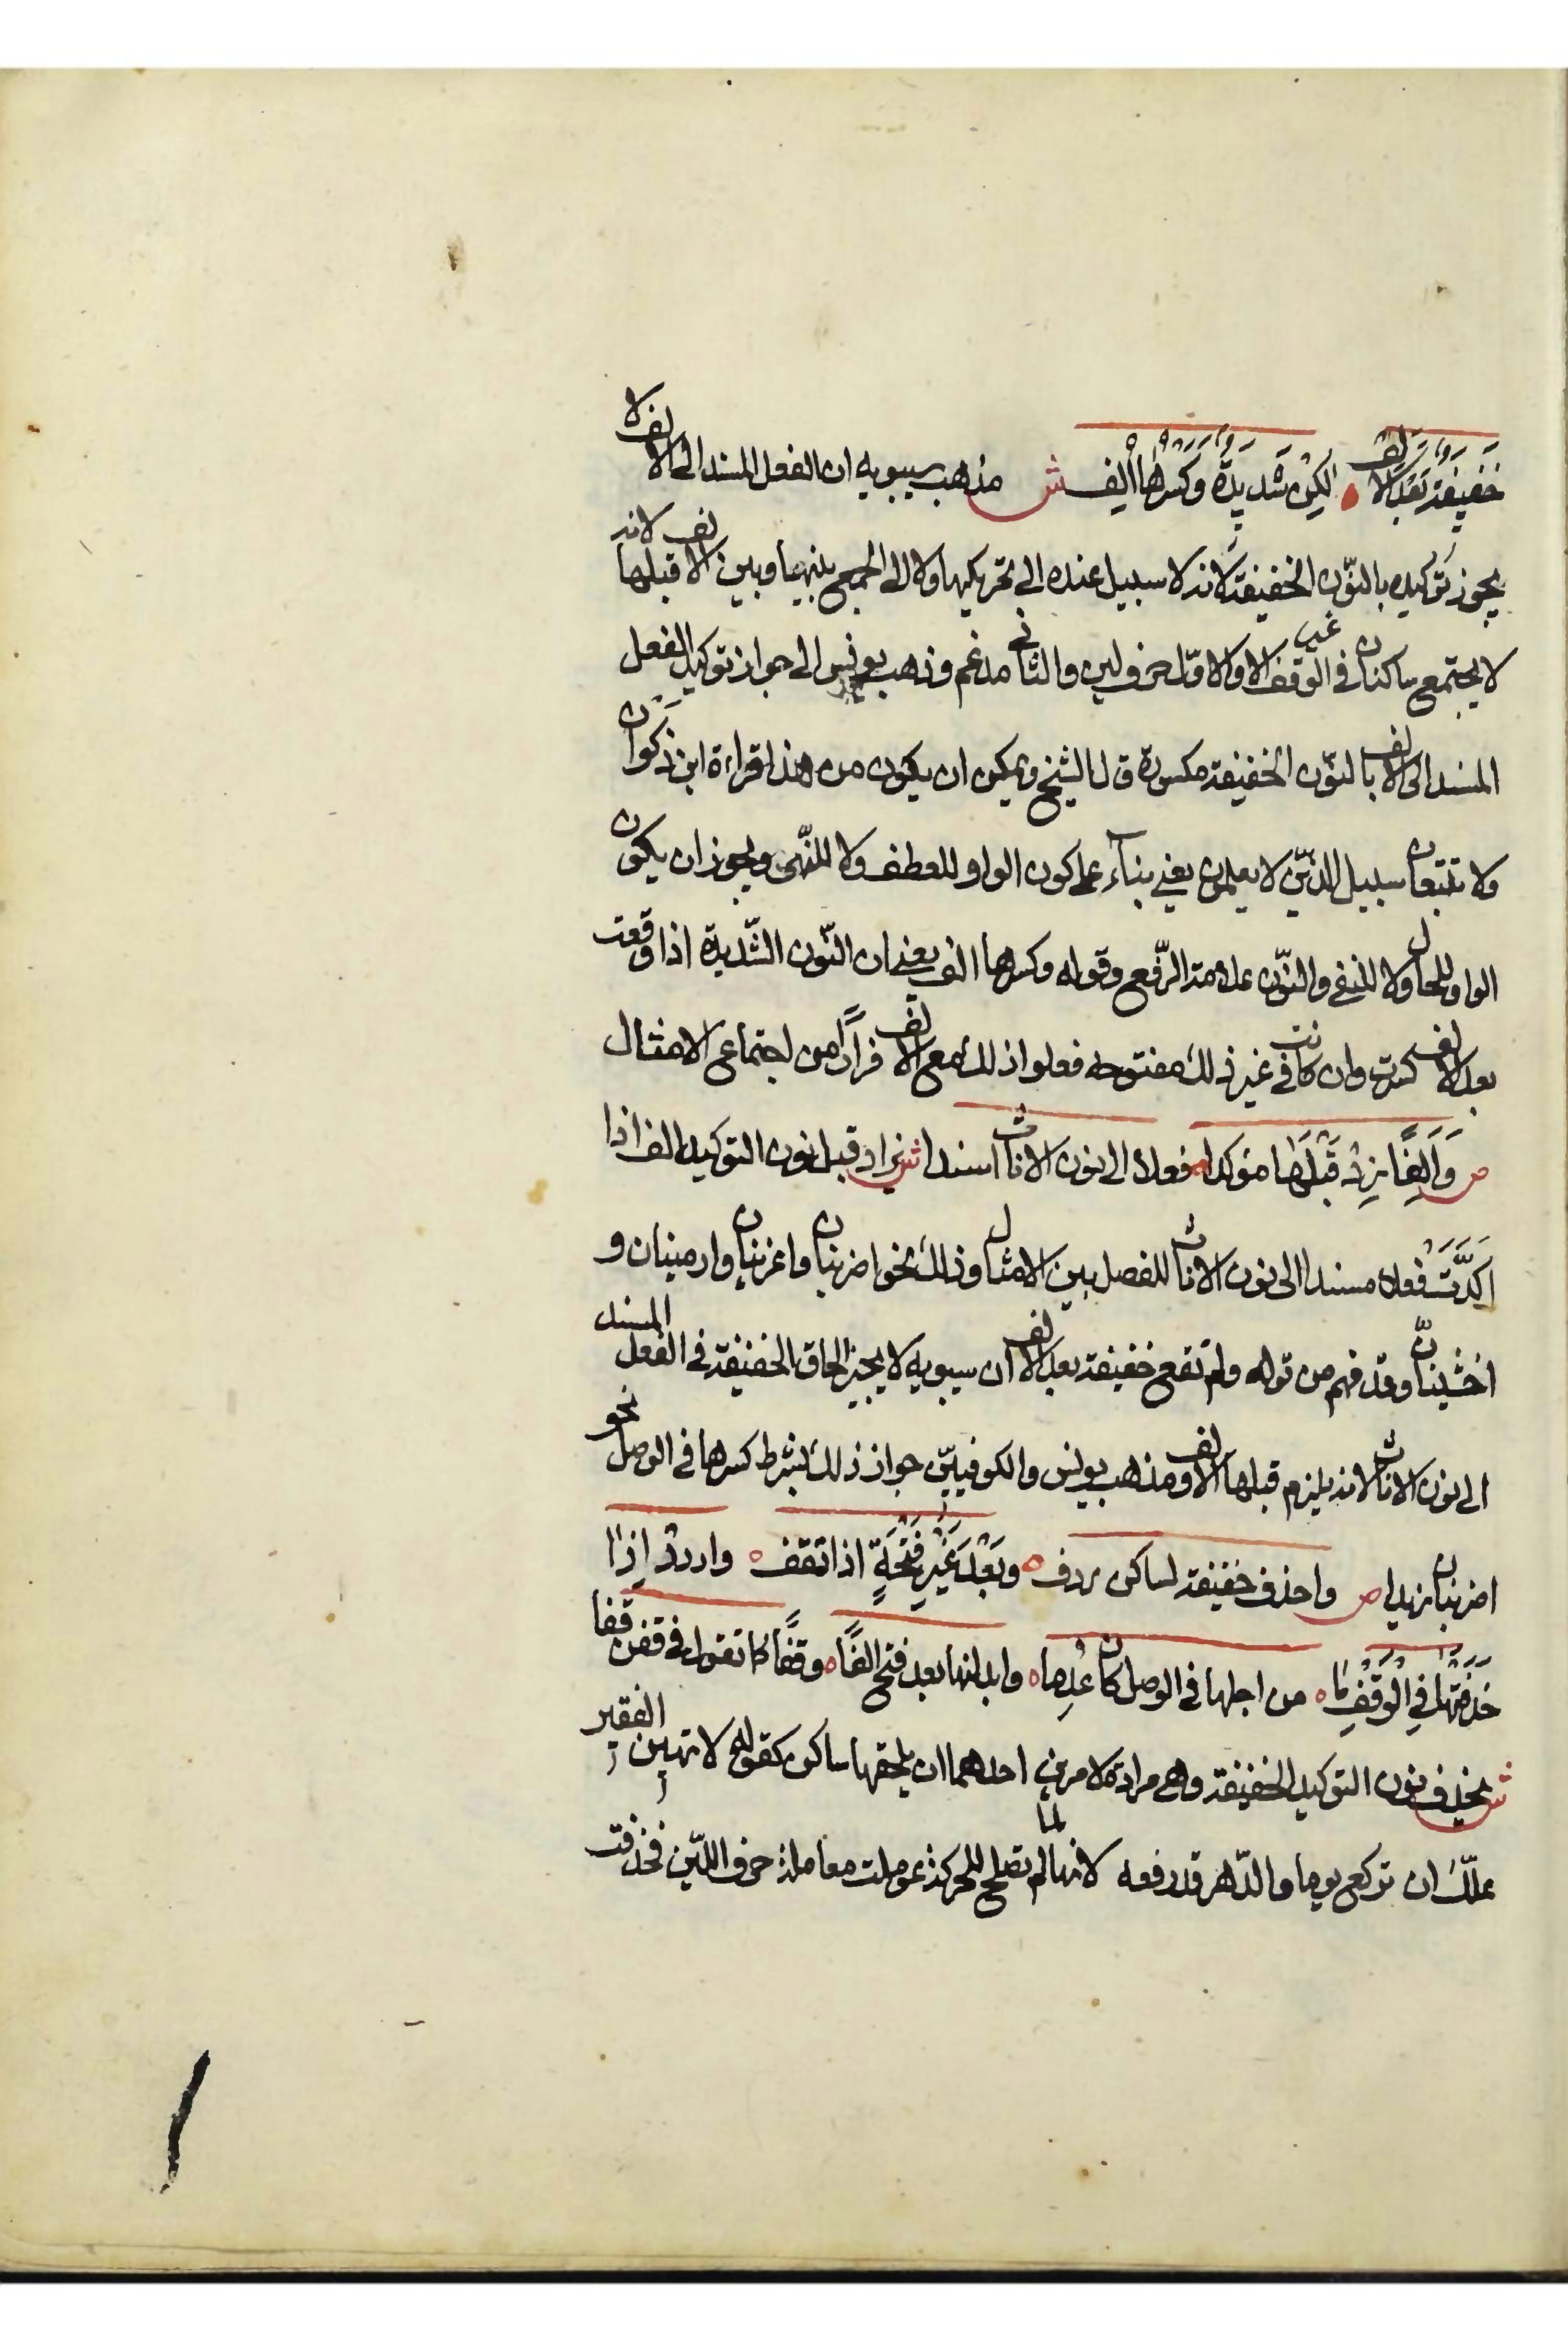 خَفِيفَةٌ بَعْدَ الْأَلِفْ ۰ لكِنْ شَدِيدَةٌ وَكَسْرُهَا أُلِفْ ش مذهب سيبويه ان الفعل المسند الى الالف لا
يجوز توكيده بالنّون الخفيفة لانه لا سبيل عنده الى تحريكها ولا الى الجمع بينها وبين الالف قبلها لانه
لا يجتمع ساكنان في غير الوقف الا والاوّل حرف لين والثاني مدغم وذهب يونس الى جواز توكيد الفعل
المسند الى الالف بالنّون الخفيفة مكسورة قال الشيخ ويمكن ان يكون من هذا قراءة ابن ذَكَوان
ولا تتبعان سبيل الذّين لا يعلمون يعني بناء على كون الواو للعطف ولا للنّهى ويجوز ان يكون
الواو للحال ولا للنفي والنّون علامة الرّفع وقوله وكسرها الف يعني ان النّون الشّديدة اذا وقعت
بعد الالف كسرت وان كانت في غير ذلك مفتوحة فعلوا ذلك مع الالف فراراً من اجتماع الامثال
ص وَأَلِفًا زِدْ قَبْلَهَا مؤكدا ۰ فعلا الى نون الاناث اسندا ش زاد قبل نون التوكيد الف اذا
اكَدَّتَ فعلا مسندا الى نون الاناث للفصل بين الامثال وذلك نحو اضربنان واغزنان وارمينان و
اخشينانّ وقد فهم من قوله ولم تقع خفيفة بعد الالف ان سيبويه لا يجيز الحاق الخفيفة في الفعل المسند
الى نون الاناث لانه يلزم قبلها الالف ومذهب يونس والكوفييّن جواز ذلك بشرط كسرها في الوصل نحو
اضربنان زيدا ص واحذف خفيفة لساكن ردف ۰ وبَعْدَ غَيْرِ فَتْحَةٍ اذا تقف ۰ وارددْ إِذا
حَذَفْتَهَا فِي الْوَقْفِ مَا ۰ من اجلها في الوصل كان عُدِما ۰ وابدلنها بعد فتح الفًا ۰ وقفًا كما تقول في قفن قفا
ش يحذف نون التوكيد الخفيفة وهي مرادة لامرين احدهما ان يلحقها ساكن كقوله لا تهين الفقير
علّك ان تركع يوما والدّهر قد رفعه لانها لما لم تصلح للحركة عوملت معاملة حرف اللّين فحذفت